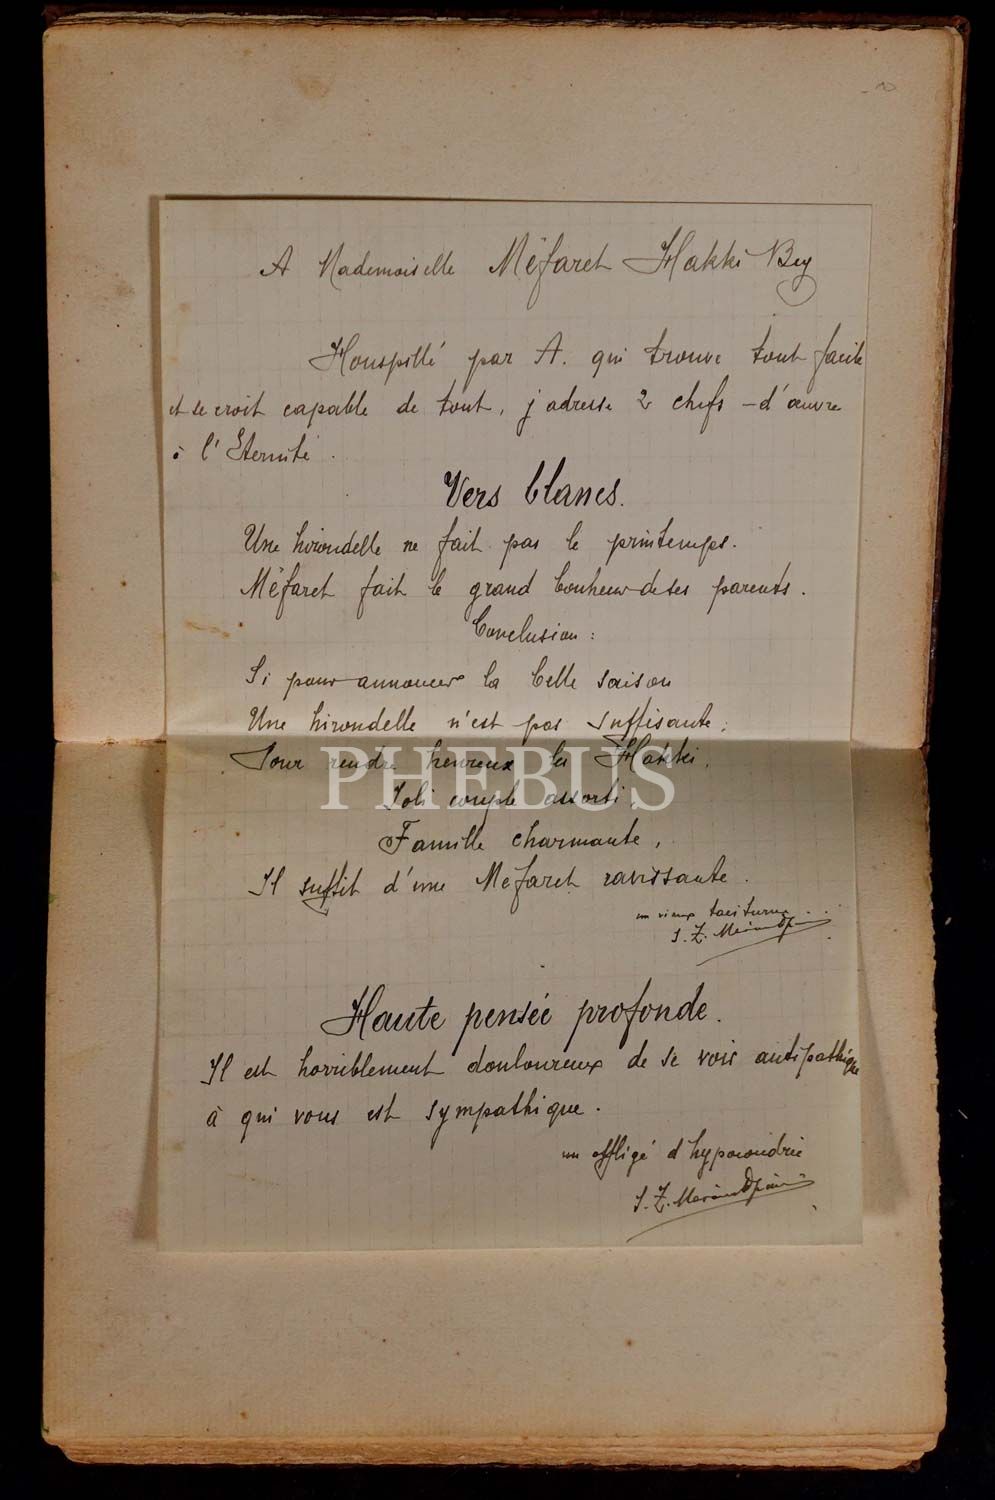 A Mademoiselle Méfaret Hakki Bey
Houspillé par A. qui trouve tout facile
et se croit capable de tout, j'adresse 2 chefs-d'œuvre
à l'Eternité.
Vers blancs.
Une hirondelle ne fait pas le printemps.
Méfaret fait le grand bonheur de ses parents.
Conclusion :
Si pour annoncer la belle saison
Une hirondelle n'est pas suffisante ;
Pour rendre heureux les Hakki,
PHEBUS
Joli couple assorti,
Famille charmante,
Il suffit d'une Mefaret ravissante.
un vieux taciturne...
S. Z.
Haute pensée profonde.
Il est horriblement douloureux de se voir antipathique
à qui vous est sympathique.
un affligé d'hypocondrie
S. Z.